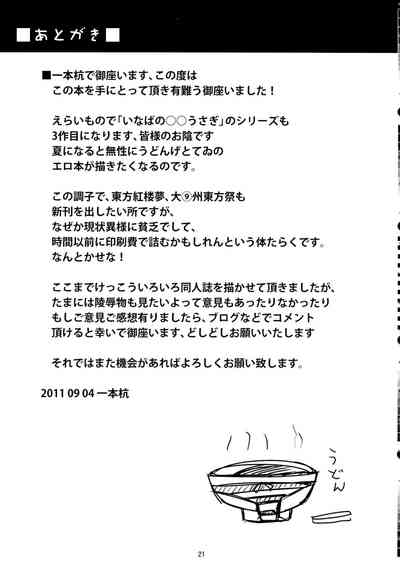 ■あとがき■
■一本杭で御座います、この度は
この本を手にとって頂き有難う御座いました！
えらいもので「いなばの○○うさぎ」のシリーズも
3作目になります、皆様のお陰です
夏になると無性にうどんげとてゐの
エロ本が描きたくなるのです。
この調子で、東方紅楼夢、大⑨州東方祭も
新刊を出したい所ですが、
なぜか現状異様に貧乏でして、
時間以前に印刷費で詰むかもしれんという体たらくです。
なんとかせな！
ここまでけっこういろいろ同人誌を描かせて頂きましたが、
たまには陵辱物も見たいよって意見もあったりなかったり
もしご意見ご感想有りましたら、ブログなどでコメント
頂けると幸いで御座います、どしどしお願いいたします
それではまた機会があればよろしくお願い致します。
2011 09 04 一本杭
うどん
21